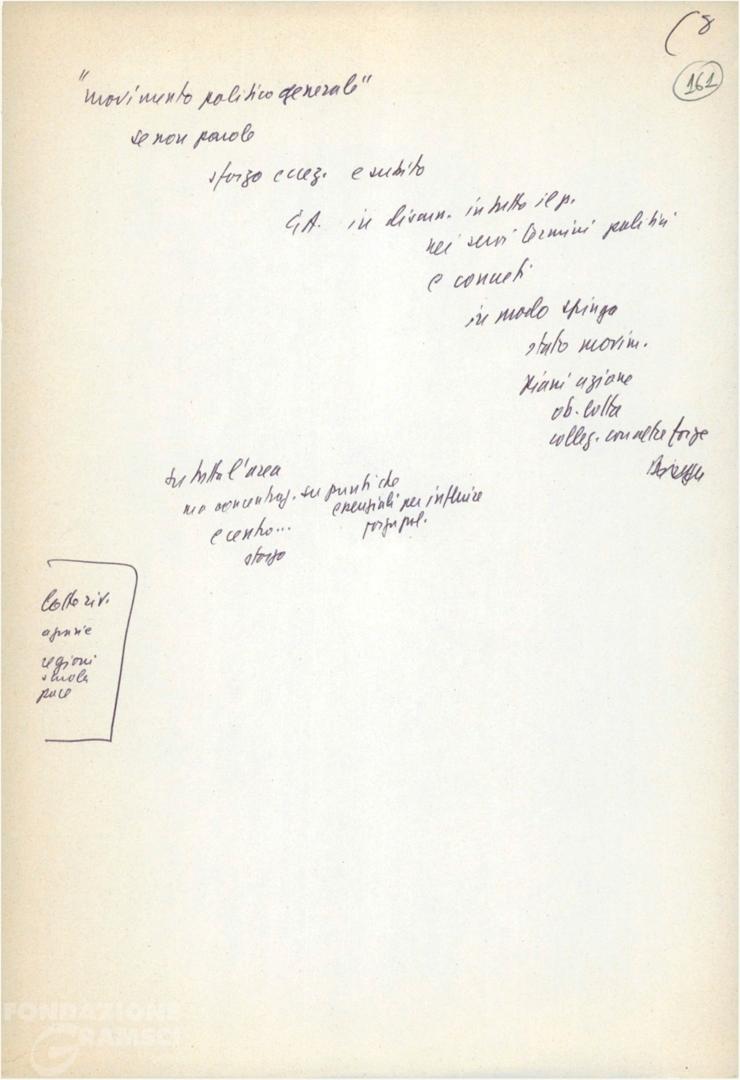 (8
161
"movimento politico generale"
se non parole
sforzo eccez. e subito
in discuss. in tutto il p.
nei servi termini politici
e concreti
in modo spinga
stato movim.
piani azione
ob. lotta
colleg. con altre forze
su tutta l'area
ma concentraz. su punti che
essenziali per influire
e centro...
sforzo
agrarie
regioni
scuola
pace
FONDAZIONE
GRAMSCI